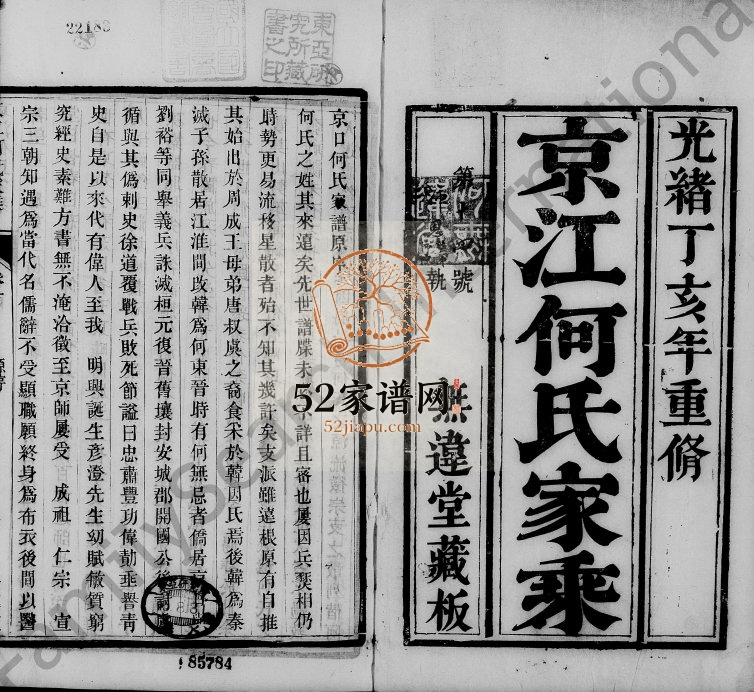 光緒丁亥年重脩
京江何氏家乘
第 號
執
無違堂藏板
22183
東亞研究所藏書之印
京口何氏家譜原
何氏之姓其來遠矣先世譜牒未 詳且審也屢因兵燹相仍
時勢更易流移星散者殆不知其幾許矣支派雖遠根原有自推
其始出於周成王母弟唐叔虞之裔食采於韓因氏焉後韓爲秦
滅子孫散居江淮間改韓爲何東晉時有何無忌者僑居
劉裕等同舉義兵誅滅桓元復晉舊壤封安城郡開國公後
循與其僞刺史徐道覆戰兵敗死節謚曰忠肅豐功偉勣垂譽青
史自是以來代有偉人至我 明興誕生彥澄先生幼賦 質窮
究經史素難方書無不淹洽徵至京師屢受 成祖 仁宗 宣
宗三朝知遇爲當代名儒辭不受顯職願終身爲布衣後間以醫
85784
52家谱网
52jiapu.com
FamilySearch International